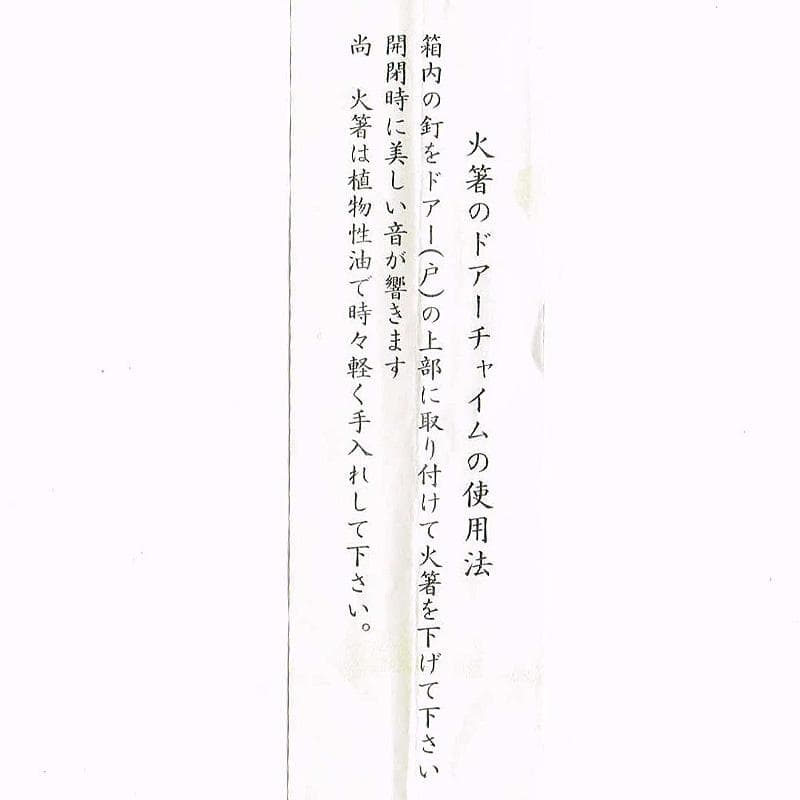 火箸のドアーチャイムの使用法
箱内の釘をドアー(戸)の上部に取り付けて火箸を下げて下さい
開閉時に美しい音が響きます
尚　火箸は植物性油で時々軽く手入れして下さい。